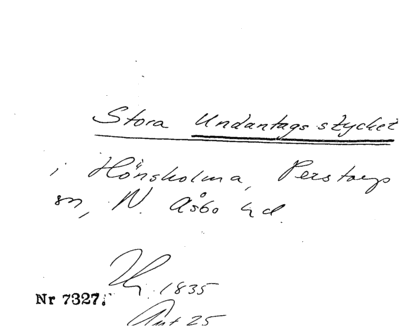 Stora Undantagsstycket
i Hönsholma, Perstorps
sn, N. Åsbo hd.
1835
Nr 7327.
Ant 25